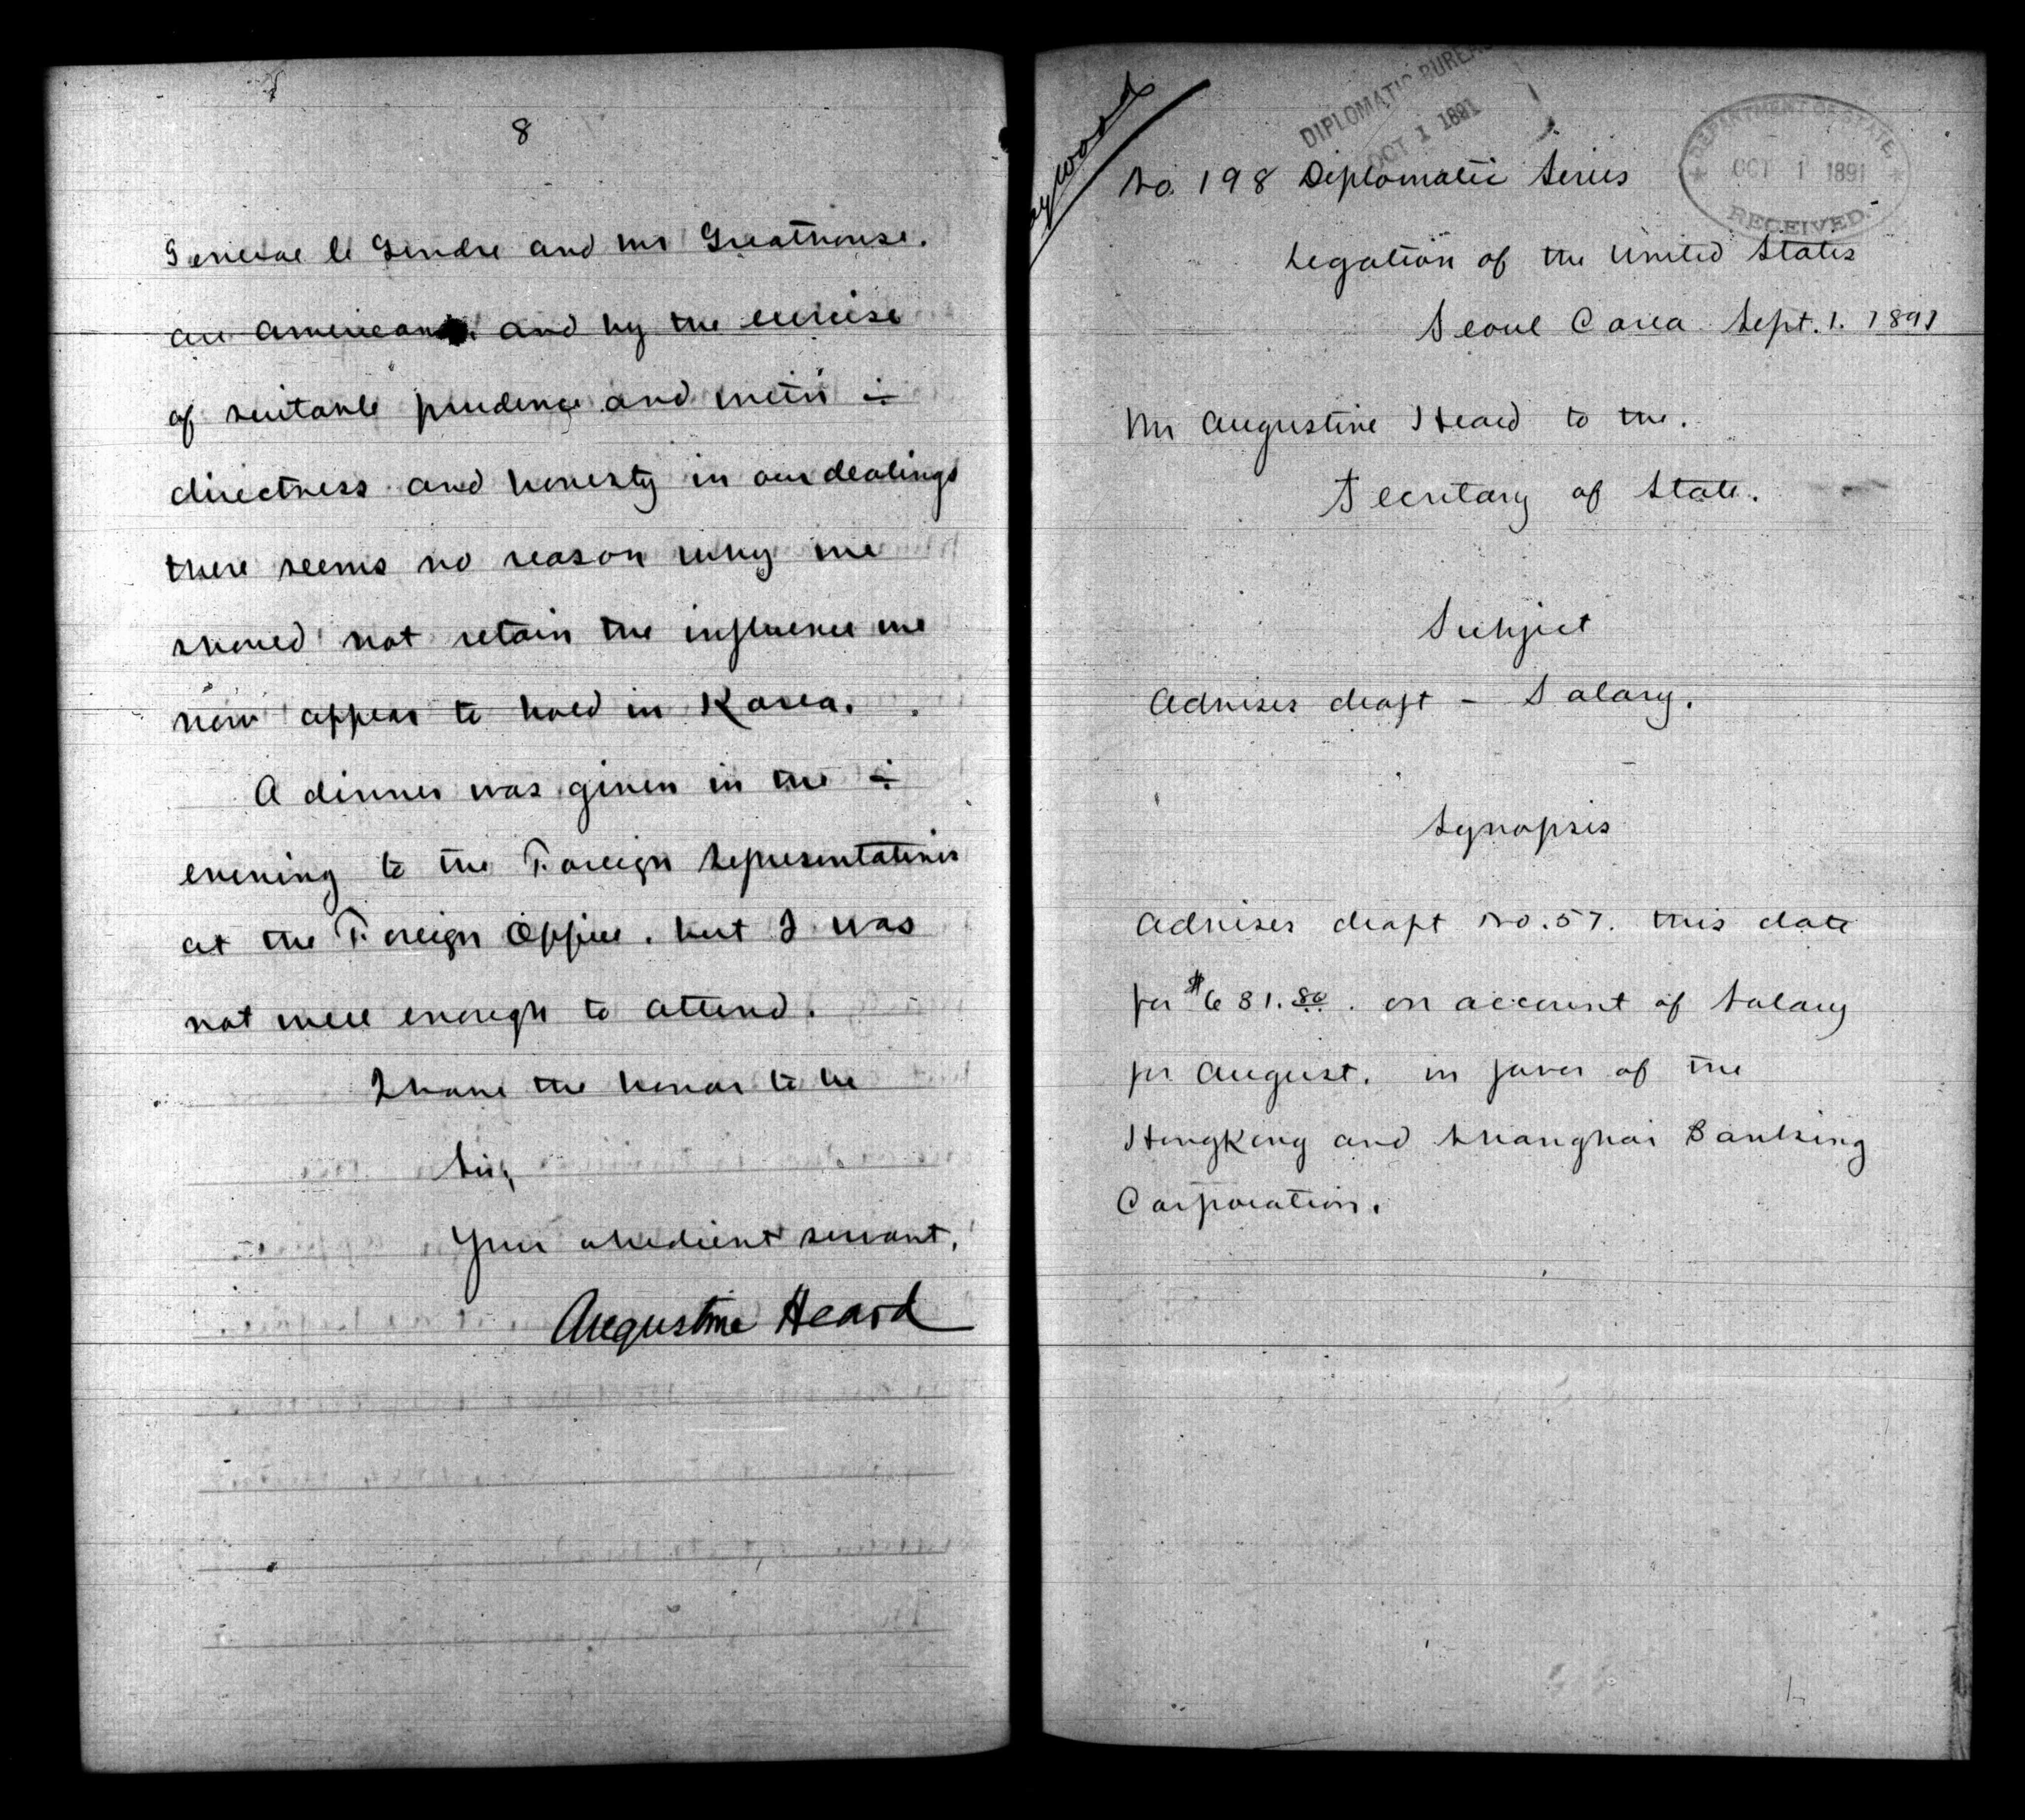 8
General le Gendre and Mr Greathouse.
are Americans. and by the exercise
of suitable prudence and with ÷
directness and honesty in our dealings
there seems no reason why we
should not retain the influence we
now appear to hold in Korea.
A dinner was given in the ÷
evening to the Foreign Representatives
at the Foreign Office. but I was
not well enough to attend.
I have the honor to be
Sir,
Your obedient servant,
Augustine Heard
DIPLOMATIC BUREAU
OCT 1 1891
DEPARTMENT OF STATE.
OCT 1 1891
RECEIVED.
No. 198 Diplomatic Series
Legation of the United States
Seoul Corea Sept. 1. 1891
Mr Augustine Heard to the.
Secretary of State.
Subject
Advises draft – Salary.
Synopsis
Advises draft No. 57. this date
for $681.80. on account of Salary
for August. in favor of the
HongKong and Shanghai Banking
Corporation.